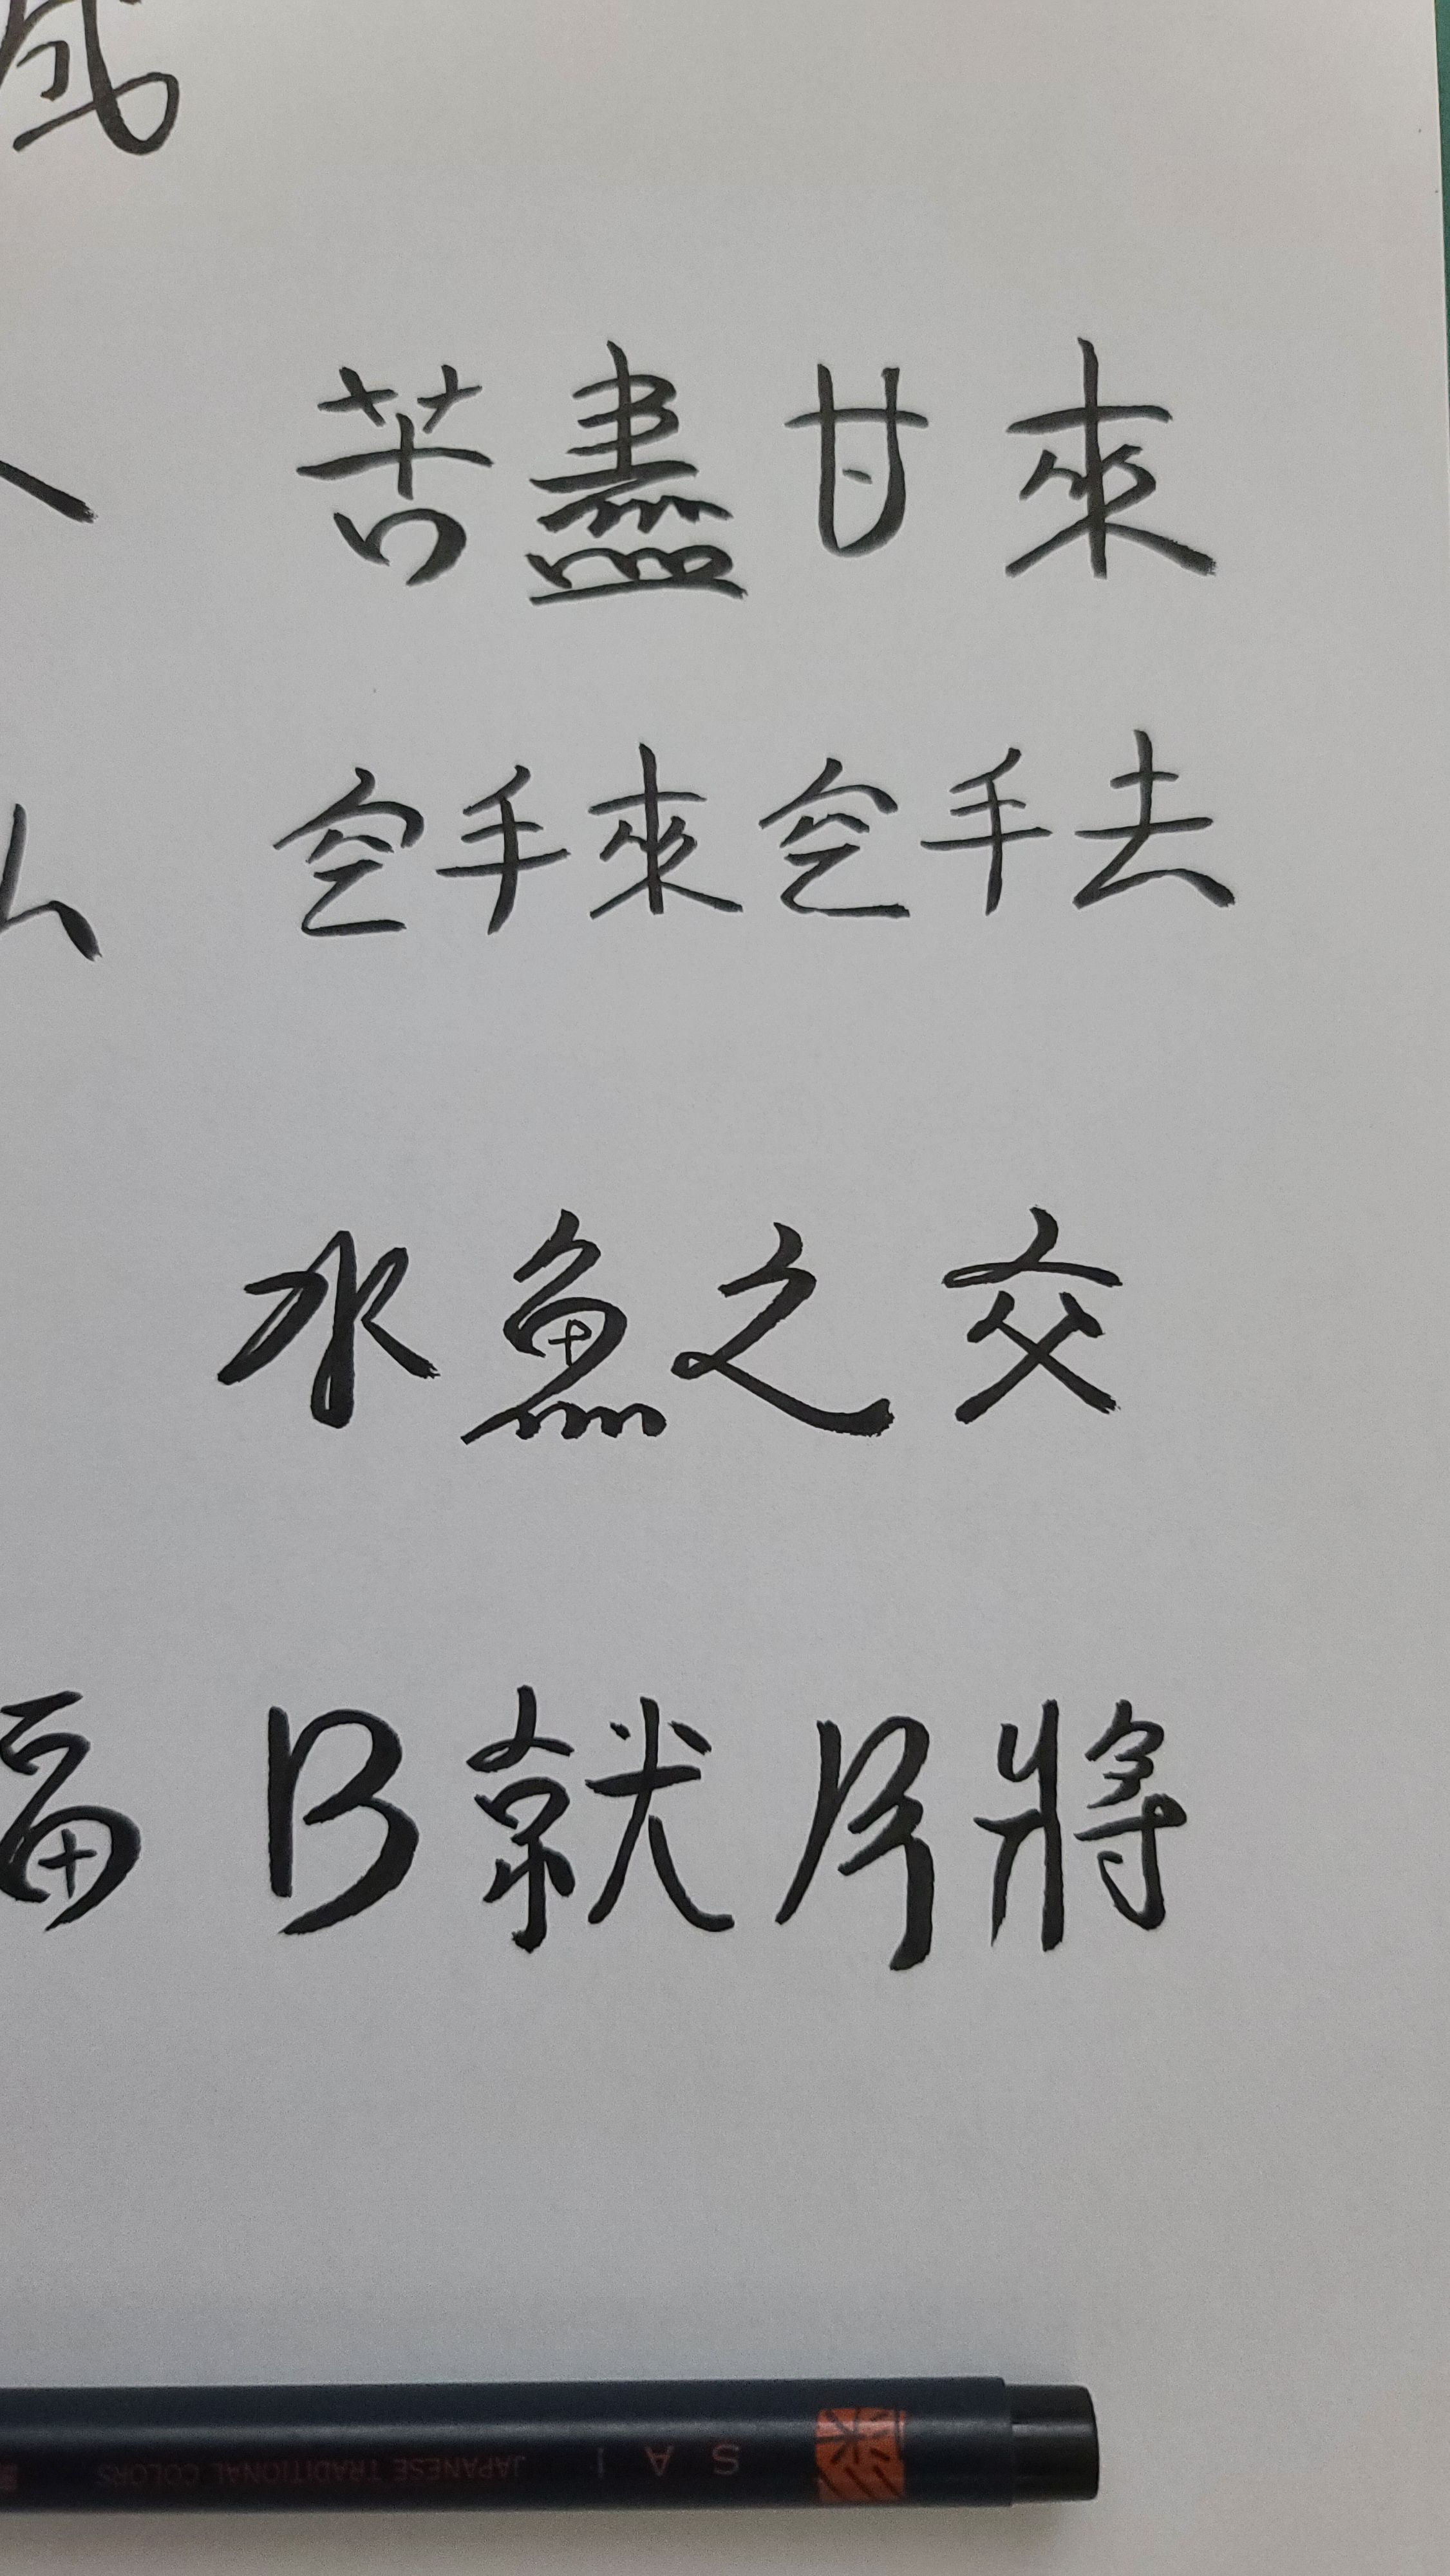 苦盡甘來
空手來空手去
水魚之交
福 日就月將
SAI
JAPANESE TRADITIONAL COLORS
彩